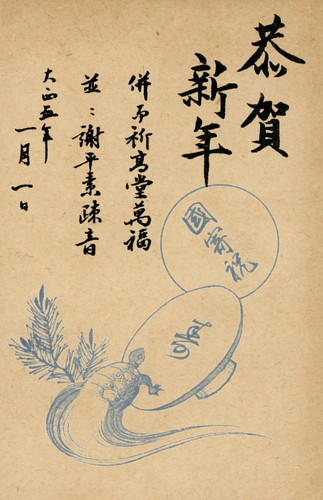 恭賀
新年
併而祈高堂萬福
並ニ謝平素疎音
大正五年
一月一日
國
寄祝